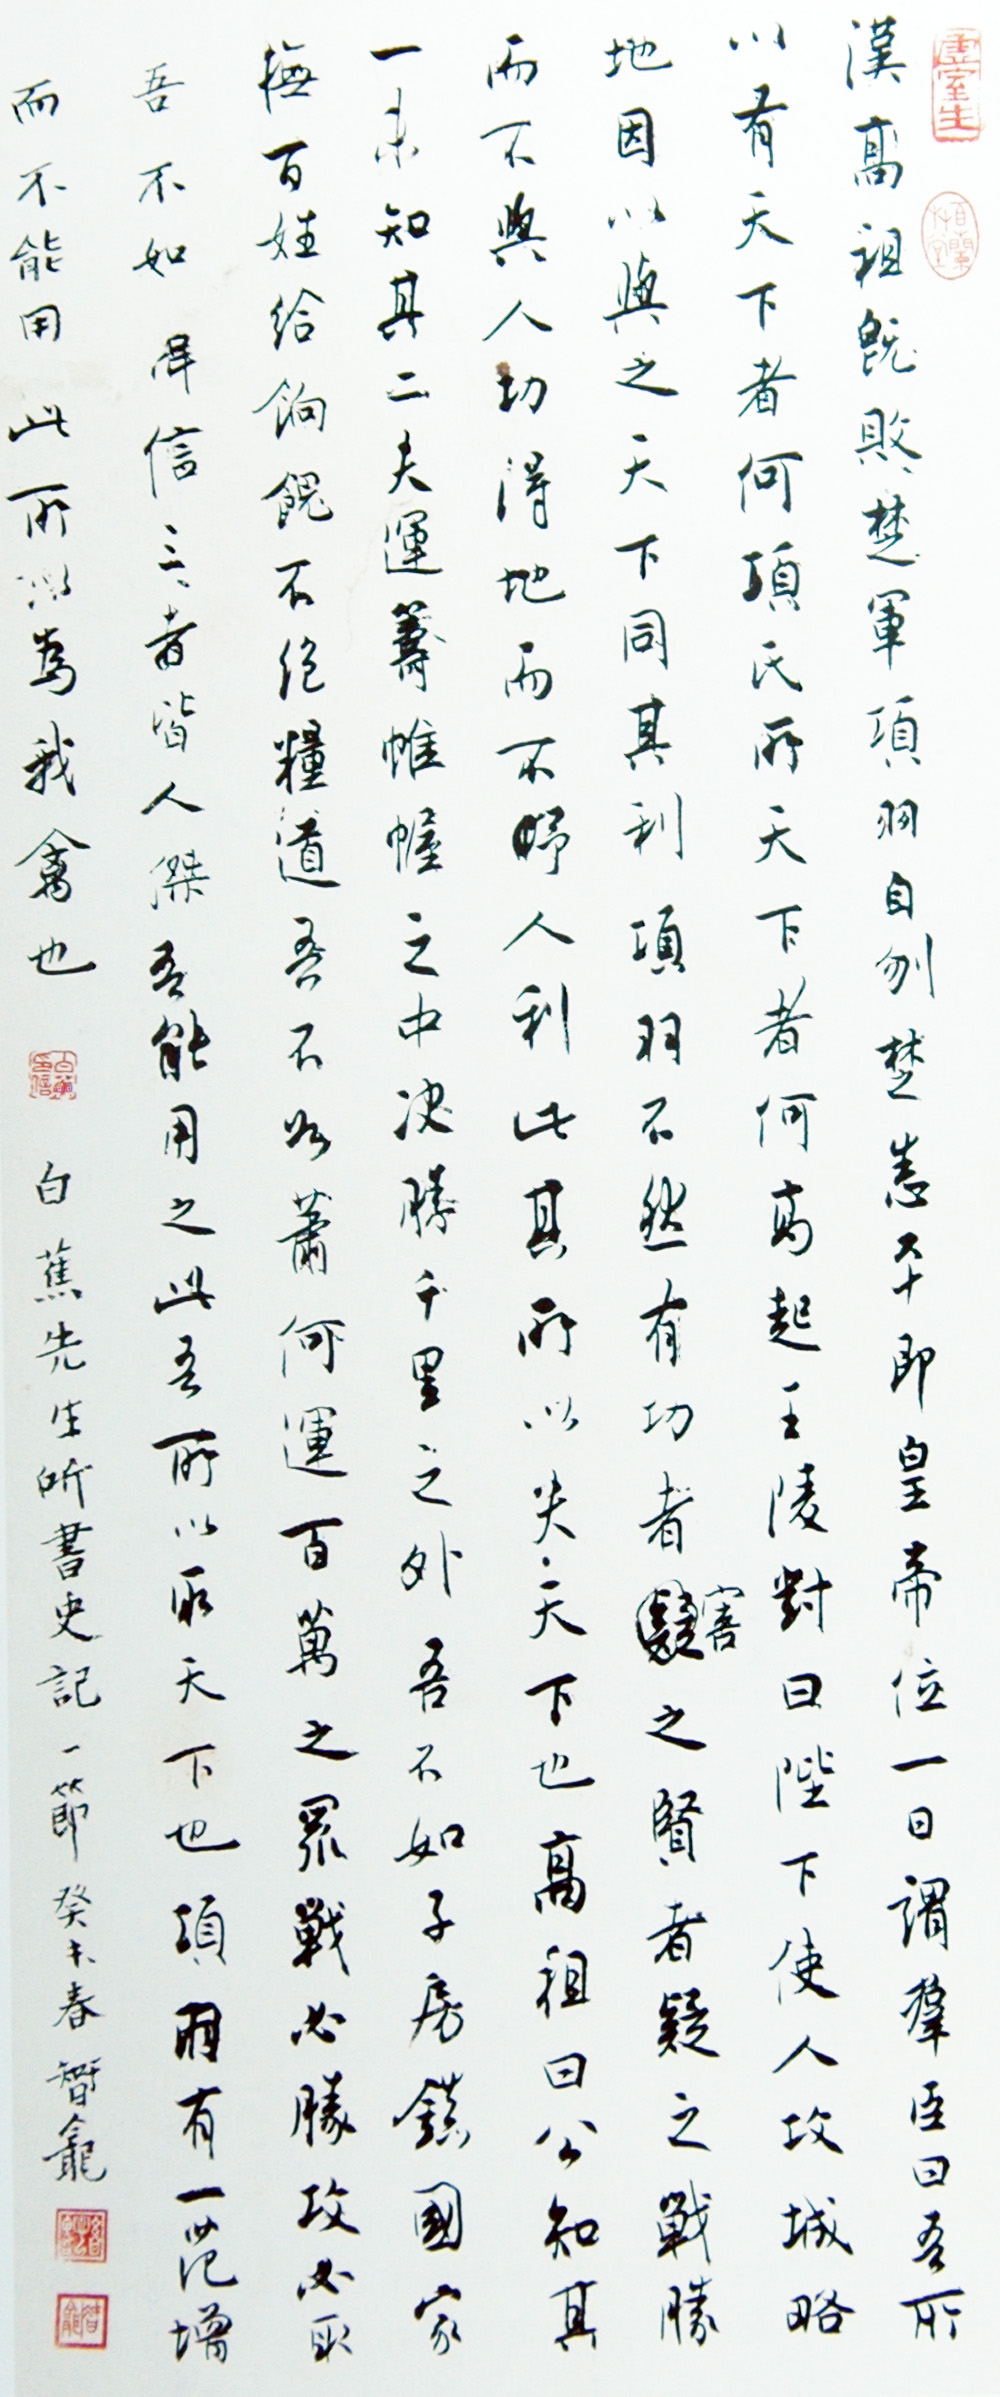 虛室生
植蘭室
漢高祖既敗楚軍項羽自刎楚悉平即皇帝位一日謂羣臣曰吾所
以有天下者何項氏所天下者何高起王陵對曰陛下使人攻城略
地因以與之天下同其利項羽不然有功者害之賢者疑之戰勝
而不與人功得地而不予人利此其所以失天下也高祖曰公知其
一未知其二夫運籌帷幄之中決勝千里之外吾不如子房鎮國家
撫百姓給餉餽不絕糧道吾不如蕭何運百萬之眾戰必勝攻必取
吾不如韓信三者皆人傑吾能用之此吾所以取天下也項羽有一范增
而不能用此所以為我禽也
白蕉先生所書史記一節癸未春智龕
智龕